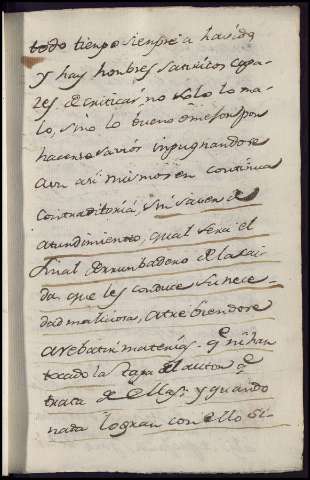 todo tienpo sienpre a hasido
y hay honbres satiricos capa-
zes de criticar, no solo lo ma-
lo, sino lo bueno
hacerse savios inpugnandose
aun asi mismos en continua
contraditoria, sin saver de
atundimiento, qual sera el
final derrunbadero de la cai-
da que les conduce su nece-
dad maliciosa, atrebiendose
arebatir materias. qe ni han
tocado la tapa el autor qe
trata de ellas: y quando
nada logran con ello si-